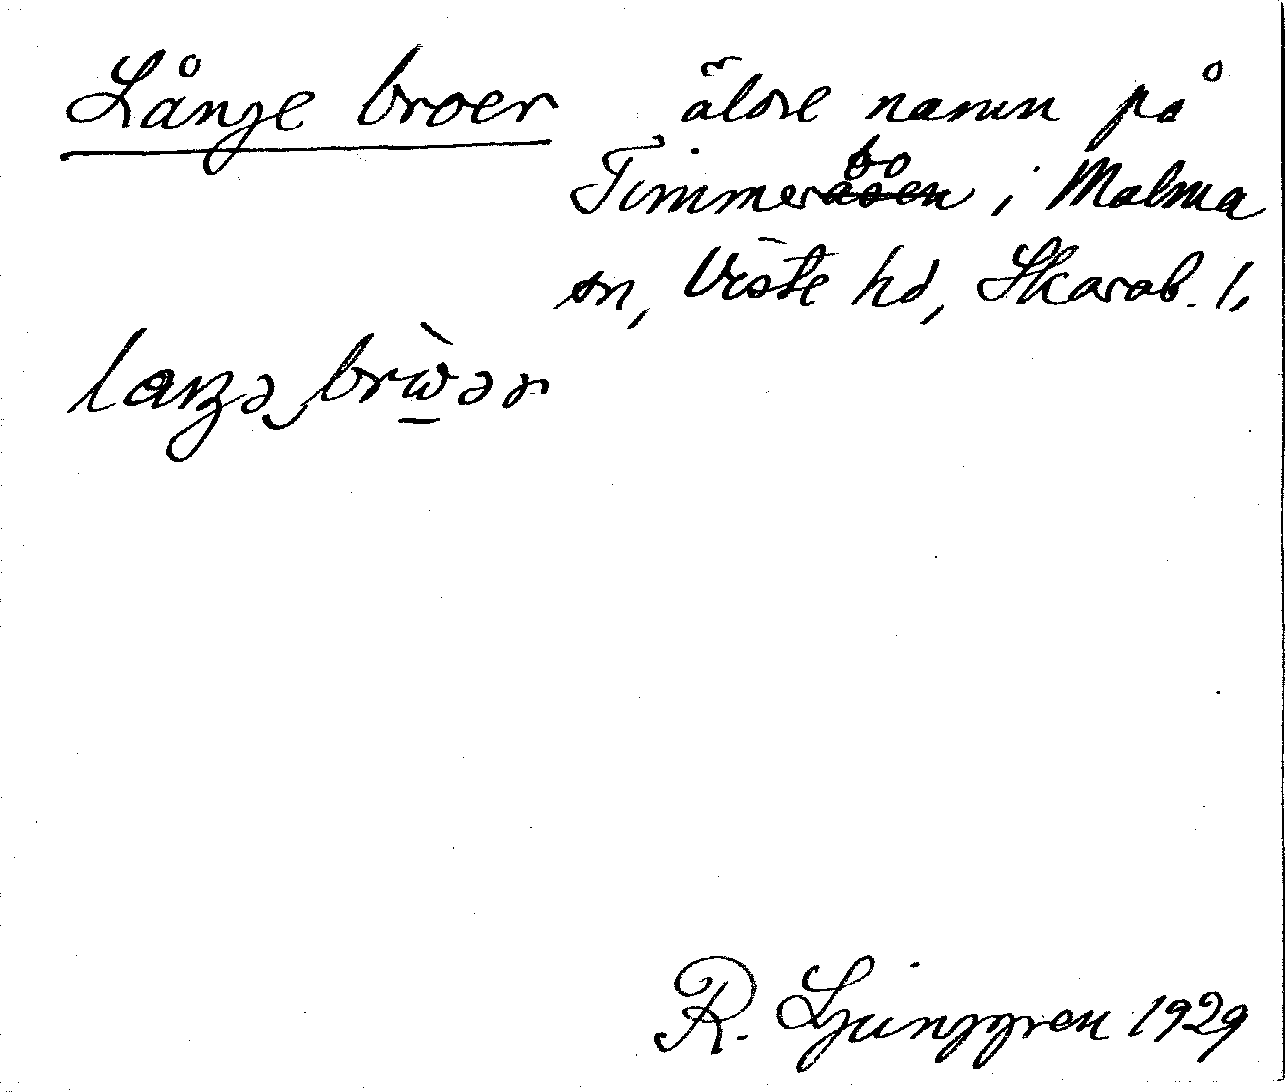 Långe broer äldre namn på
Timmerbo i Malma
sn, Viste hd, Skarab. l.
laŋə brẁ̱ər
R. Ljunggren 1929